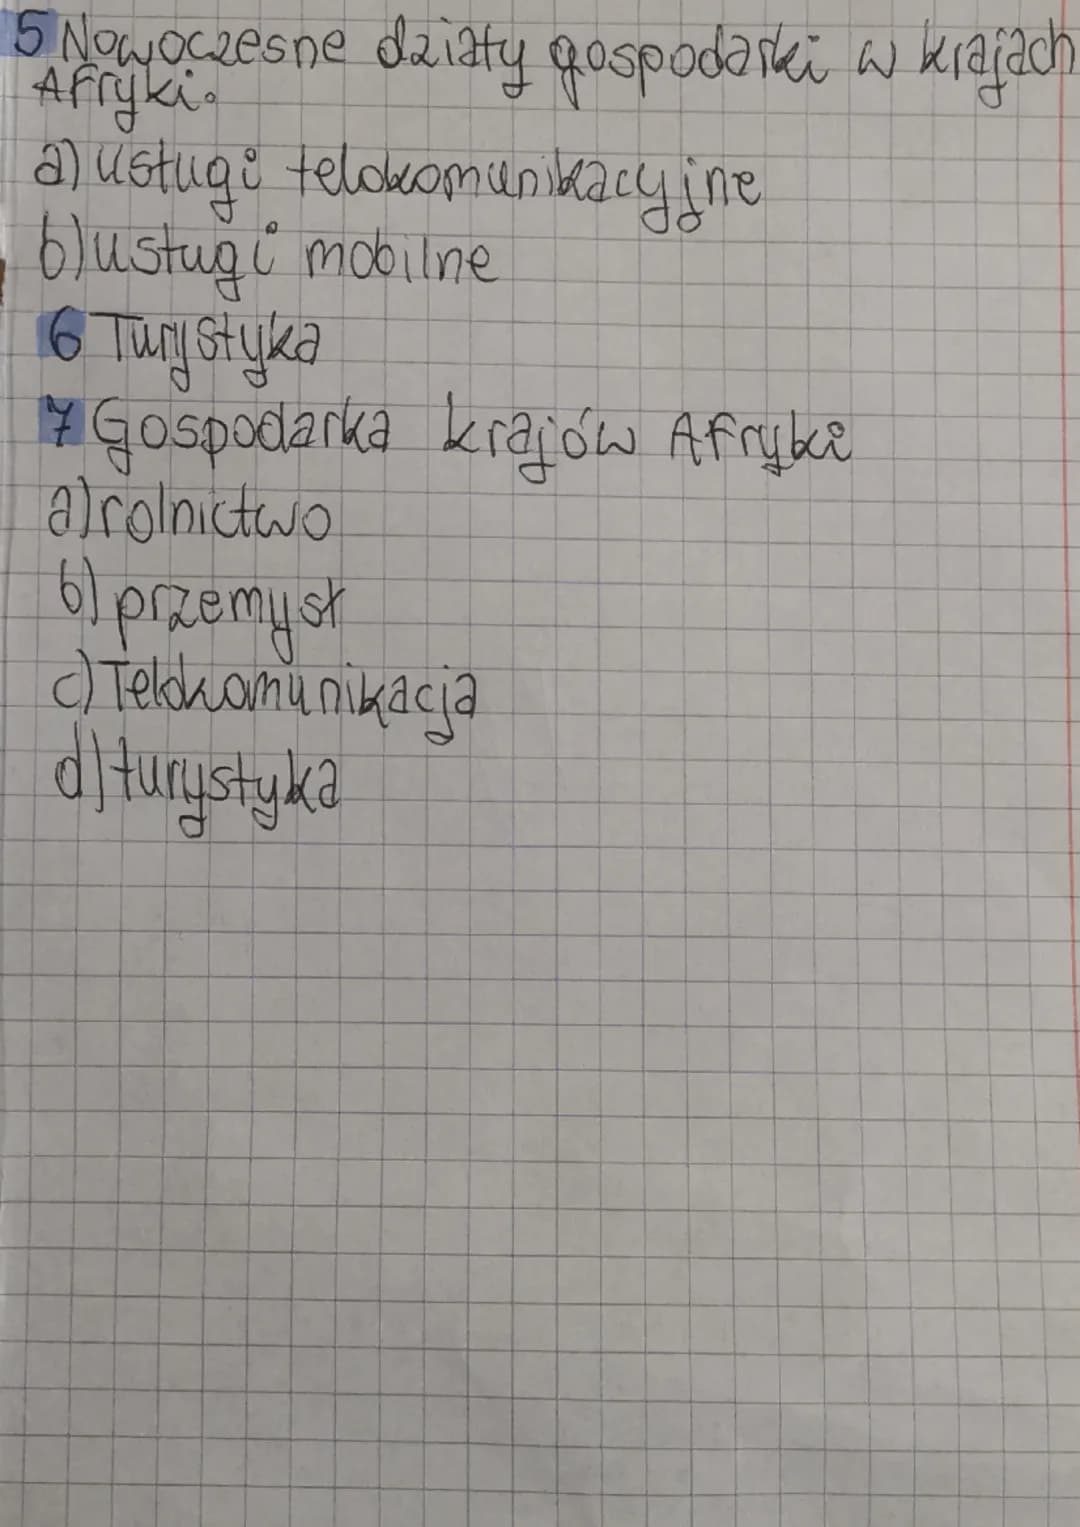 5 Nowoczesne działy gospodarki w krajach
Afryki.
a) usługi telekomunikacyjne
b) usługi mobilne
6 Turystyka
7 Gospodarka krajów Afryki
a) rolnictwo
b) przemysł
c) Telekomunikacja
d) turystyka